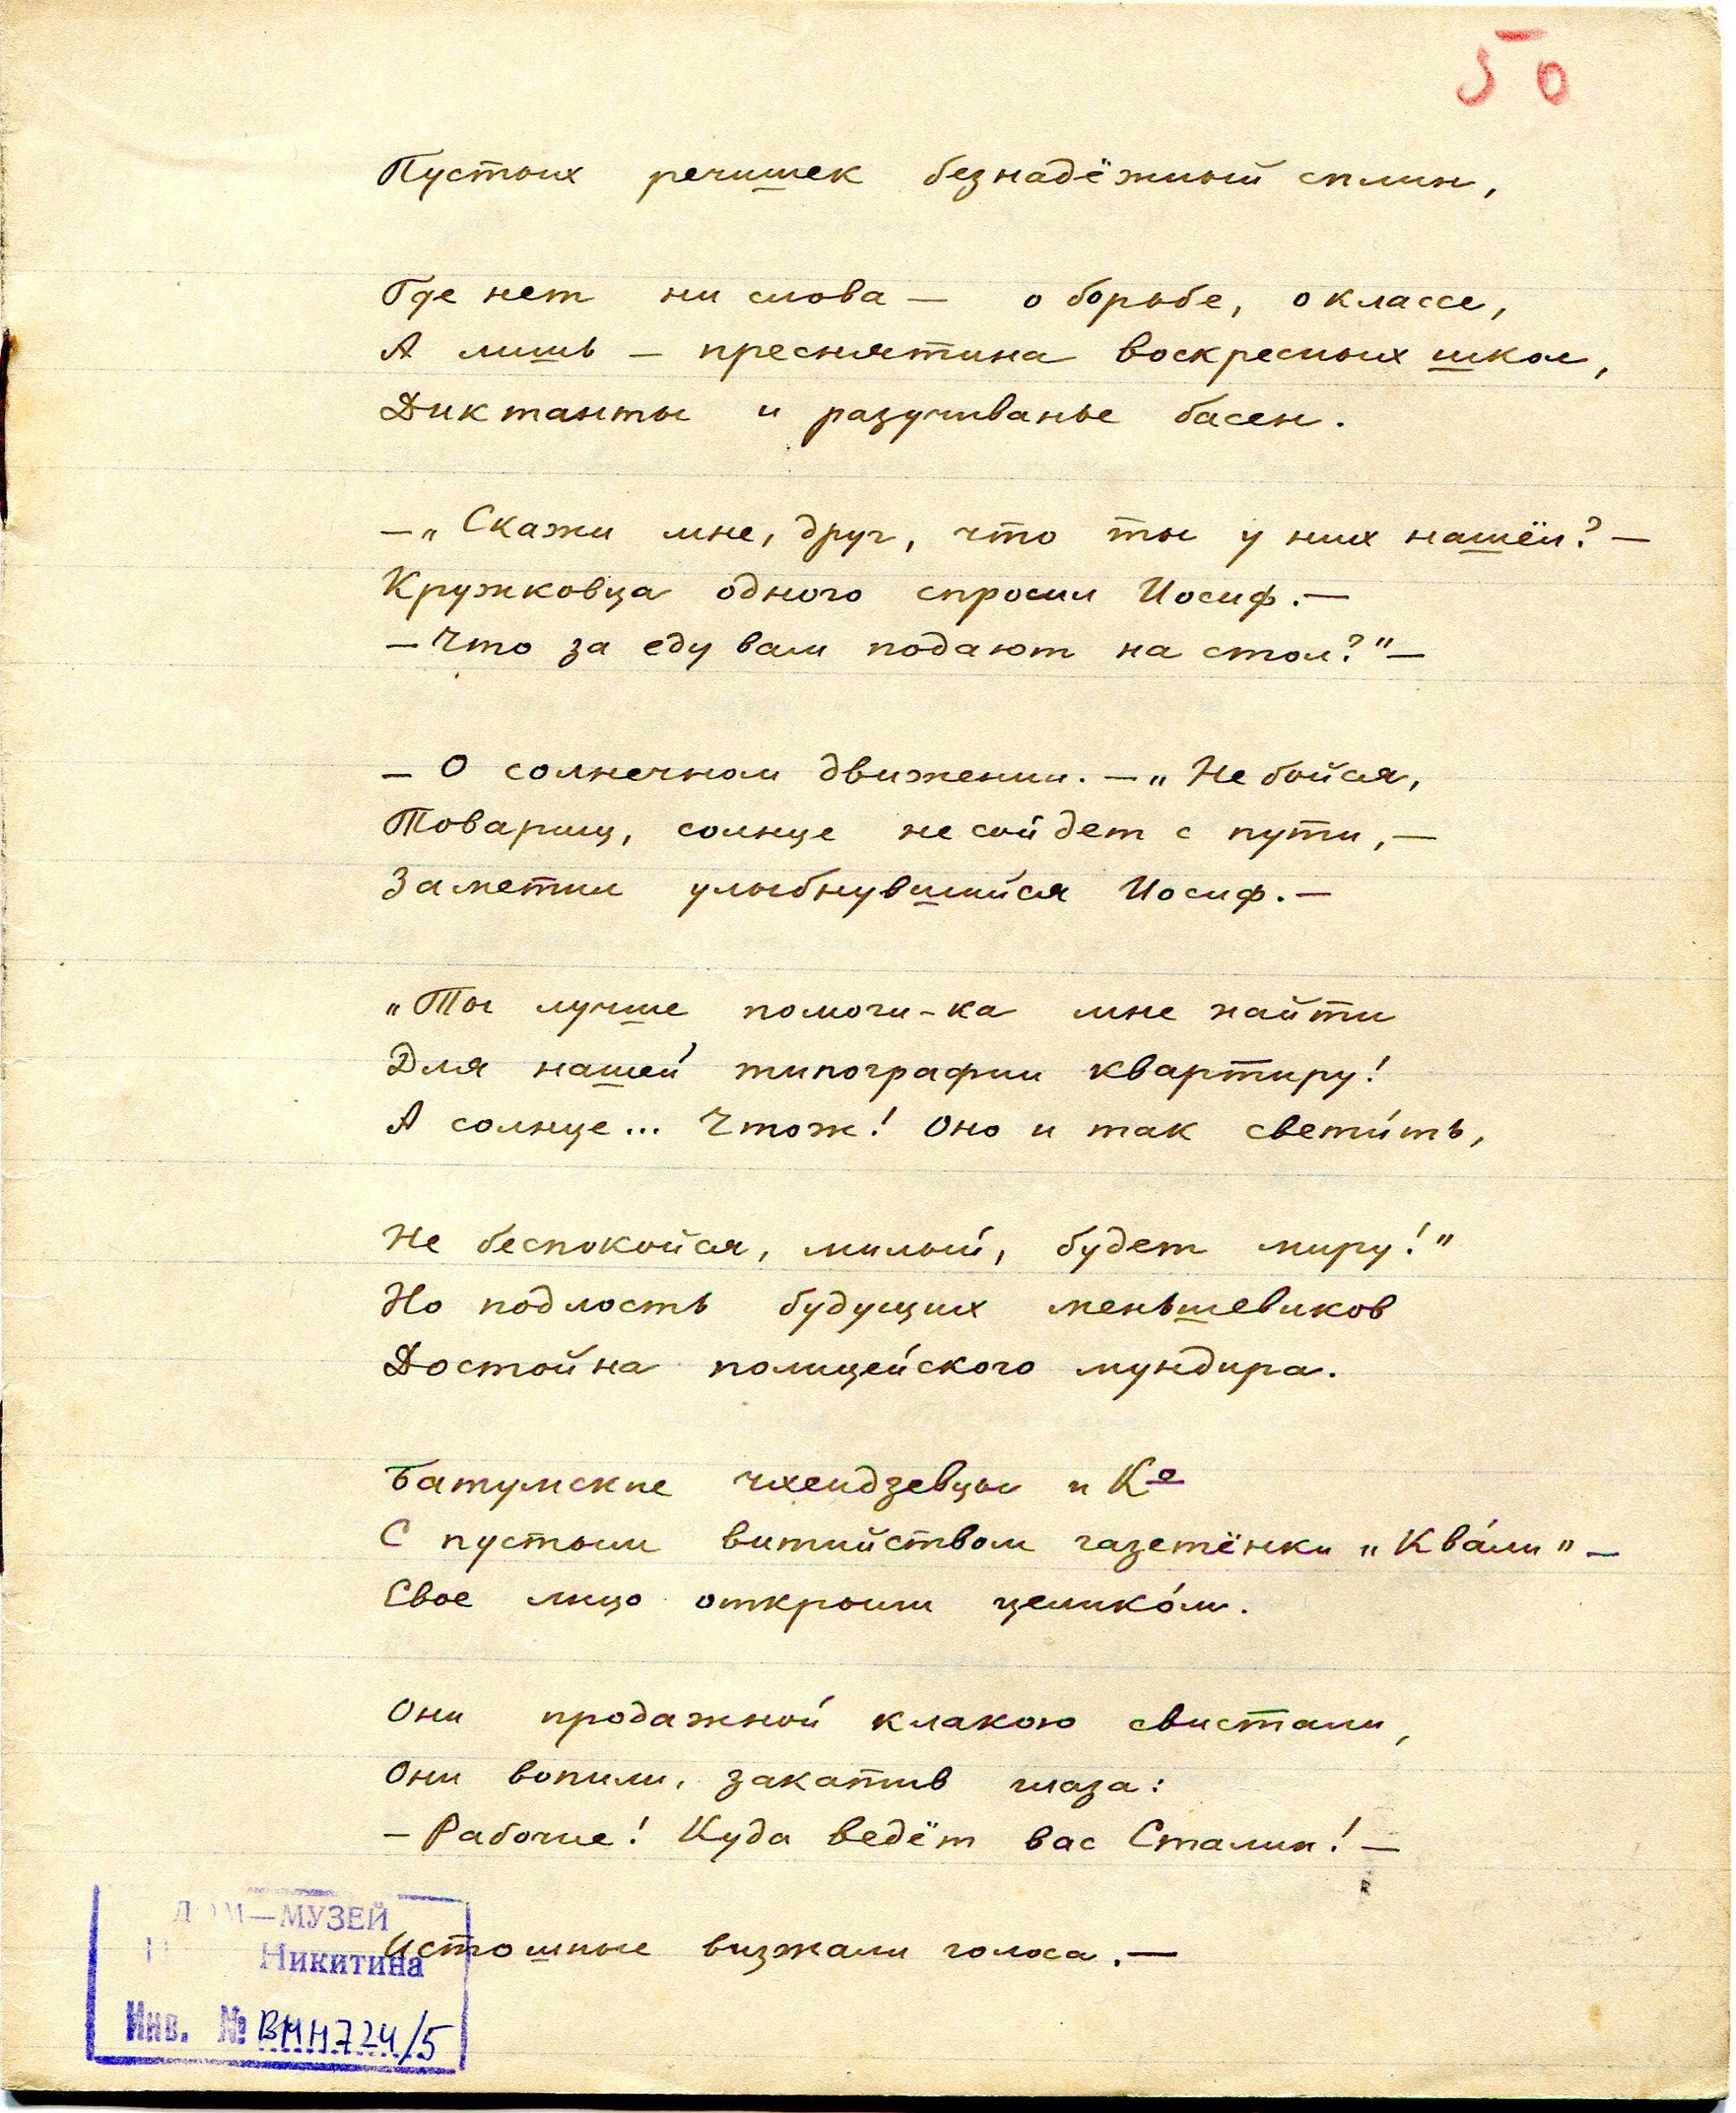 50
Пустых речишек безнадёжный сплин,
Где нет ни слова — о борьбе, о классе,
А лишь — преснятина воскресных школ,
Диктанты и разучиванье басен.
— „Скажи мне, друг, что ты у них нашёл? —
Кружковца одного спросил Иосиф. —
— Что за еду вам подают на стол?" —
— О солнечном движении. — „Не бойся,
Товарищ, солнце не сойдет с пути, —
Заметил улыбнувшийся Иосиф. —
„Ты лучше помоги-ка мне найти
Для нашей типографии квартиру!
А солнце... Чтож! Оно и так свети́ть,
Не беспокойся, милый, будет миру!"
Но подлость будущих меньшевиков
Достойна полицейского мундира.
Батумские чхеидзевцы и Ко
С пустым витийством газетёнки „Ква́ли" —
Свое лицо открыли целико́м.
Они продажной клакою свистали,
Они вопили, закатив глаза:
— Рабочие! Куда ведёт вас Сталин! —
Истошные визжали голоса. —
ДОМ—МУЗЕЙ
Никитина
Инв. № ВМН724/5